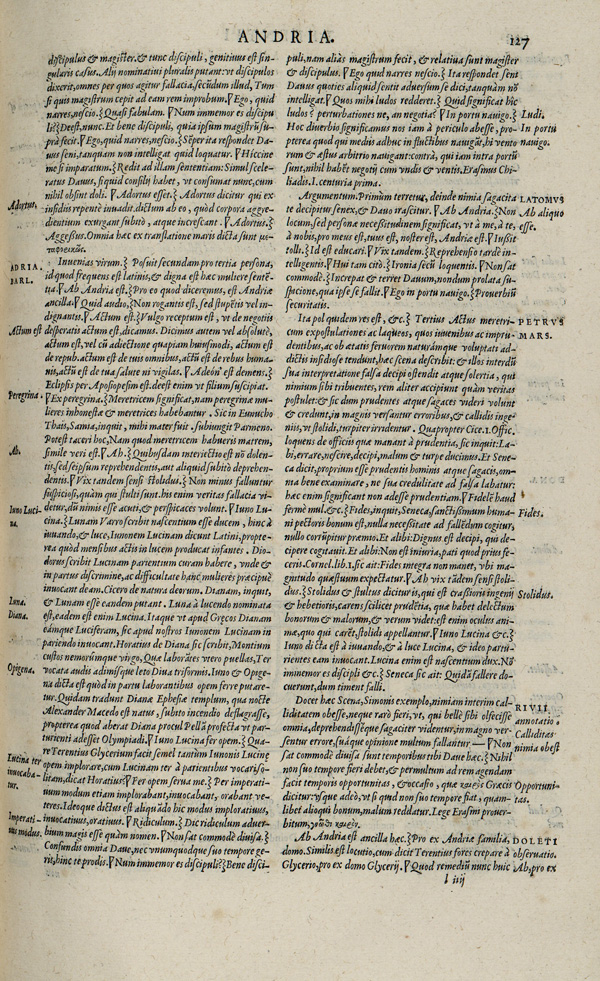 ANDRIA. 127
discipulus & magister. & tunc discipuli, genitiuus est sin-
gularis casus. Alij nominatiui pluralis putant: vt discipulos
dixerit, omnes per quos agitur fallacia, secundum illud, Tum
si quis magistrum cepit ad eam rem improbum. Ego, quid
narres, nescio. Quasi fabulam. Num immemor es discipu-
li? Deest, nunc. Et bene discipuli, quia ipsum magistrū su-
prà fecit. Ego, quid narres, nescio. Semper ita respondet Da-
uus seni, tanquam non intelligat quid loquatur. Hiccine
me si imparatum. Redit ad illam sententiam: Simul scele-
ratus Dauus, si quid consilij habet, vt consumat nunc, cum
nihil obsint doli. Adortus esset. Adortus dicitur qui ex
Adortus,
insidijs repentè inuadit, dictum ab eo, quòd corpora aggre-
dientium exurgant subitò, atque increscant. Adortus.
Aggressus. Omnia haec ex translatione maris dicta sunt
ADRIA.
BARL.
Inuenias virum. Posuit secundam pro tertia persona,
id quod frequens est latinis, & digna est haec muliere senten-
tia. Ab Andria est. Pro eo quod diceremus, est Andriæ
ancilla. Quid audio, Non rogantis est, sed stupentis vel in-
dignantis. Actum est. Vulgo receptum est, vt de negotijs
Actum est
desperatis actum est, dicamus. Dicimus autem vel absolutè,
actum est, vel cū adiectione quapiam huiusmodi, actum est
de repub. actum est de tuis omnibus, actū est de rebus huma-
nis, actū est de tua salute ni vigilas. Adeón' est demens.
Eclipsis per Aposiopesim est. deest enim vt filium suscipiat.
Peregrina.
Ex peregrina. Meretricem significat, nam peregrinæ mu-
lieres inhonestæ & meretrices habebantur. Sic in Eunucho
Thais, Samia, inquit, mihi mater fuit. subiungit Parmeno.
Potest taceri hoc, Nam quod meretricem habueris matrem,
Ah.
simile veri est. Ah. Quibusdam interiectio est nō dolen-
tis, sed seipsum reprehendentis, aut aliquid subitò deprehen-
dentis. Vix tandem sensi stolidus. Non minus falluntur
suspiciosi, quàm qui stulti sunt. his enim veritas fallacia vi-
detur, dū nimis esse acuti, & perspicaces volunt. Iuno Lu-
Iuno Luci-
na.
cina. Lunam Varro scribit nascentium esse ducem, hinc à
iuuando, & luce, Iunonem Lucinam dicunt Latini, propte-
rea quòd mensibus actis in lucem producat infantes. Dio-
dorus scribit Lucinam parientum curam habere, vnde &
in partus discrimine, ac difficultate hanc mulieres præcipuè
inuocant deam. Cicero de natura deorum. Dianam, inquit,
Luna.
Diana.
& Lunam esse eandem putant. Luna à lucendo nominata
est, eadem est enim Lucina. Itaque vt apud Græcos Dianam
eámque Luciferam, sic apud nostros Iunonem Lucinam in
pariendo inuocant. Horatius de Diana sic scribit, Montium
custos nemorúmque virgo, Quæ laborātes vtero puellas, Ter
vocata audis adimísque leto Diua triformis. Iuno & Opige-
Opigena.
na dicta est quòd in partu laborantibus opem ferre putare-
tur. Quidam tradunt Dianæ Ephesiæ templum, qua nocte
Alexander Macedo est natus, subito incendio deflagrasse,
propterea quod aberat Diana procul Pellā profecta vt par-
turienti adesset Olympiadi. Iuno Lucina fer opem. Qua-
Lucina ter
inuocaba-
tur.
re Terentius Glycerium facit semel tantùm Iunonis Lucinę
opem implorare, cum Lucinam ter à parientibus vocari so-
litam, dicat Horatius. Fer opem serua me. Per imperati-
uum modum etiam implorabant, inuocabant, orabant ve-
teres. Ideoque dictus est aliquādo hic modus imploratiuus,
Imperati-
uus modus.
inuocatiuus, oratiuus. Ridiculum. Dic ridiculum aduer-
bium magis esse quàm nomen. Non sat commodè diuisa.
Confundis omnia Daue, nec vnumquodque suo tempore ge-
ris, hinc te prodis. Num immemor es discipuli? Bene disci-
puli, nam aliàs magistrum fecit, & relatiua sunt magister
& discipulus. Ego quid narres nescio. Ita respondet seni
Dauus quoties aliquid sentit aduersum se dici, tanquàm nō
intelligat. Quos mihi ludos redderet. Quid significat hic
ludos? perturbationes ne, an negotia? In portu nauigo.
Ludi.
In portu
nauigo.
Hoc diuerbio significamus nos iam à periculo abesse, pro-
pterea quod qui medijs adhuc in fluctibus nauigāt, hi vento
rum & æstus arbitrio nauigant: contrà, qui iam intra portū
sunt, nihil habēt negotij cum vndis & ventis. Erasimus Chi-
liadis. I. centuria prima.
Argumentum. Primùm terretur, deinde nimia sagacita
LATOMVS
te decipitur senex, & Dauo irascitur. Ab Andria. Non
Ab aliquo
esse.
locum, sed personæ necessitudinem significat, vt à me, à te,
à nobis, pro meus est, tuus est, noster est, Andriæ est. Iussit
tolli. Id est educari. Vix tandem. Reprehensio tardè in-
telligentis. Hui tam citò. Ironia secū loquentis. Non sat
commodè. Increpat & terret Dauum, nondum prolata su-
spicione, qua ipse se fallit. Ego in portu nauigo. Prouerbiū
securitatis.
Ita pol quidem res est, &c. Tertius Actus meretri-
PETRVS
MARS.
cum expostulationes ac laqueos, quos iuuenibus ac impru-
dentibus, ac ob ætatis feruorem naturámque voluptati ad-
dictis insidiosè tendunt, hæc scena describit: & illos interdū
sua interpretatione falsa decipi ostendit atque solertia, qui
nimium sibi tribuentes, rem aliter accipiunt quàm veritas
postulet: & sic dum prudentes atque sagaces videri volunt
& credunt, in magnis versantur erroribus, & callidis inge-
nijs, vt stolidi, turpiter irridentur. Quapropter Cice. 1. Offic.
loquens de officijs quæ manant à prudentia, sic inquit: La-
bi, errare, nescire, decipi, malum & turpe ducimus. Et Sene-
ca dicit, proprium esse prudentis hominis atque sagacis, om-
ma bene examinare, ne sua credulitate ad falsa labatur:
hæc enim significant non adesse prudentiam. Fidele haud
Fides.
fermè mul. &c. Fides, inquit, Seneca, sanctissimum huma-
ni pectoris bonum est, nulla necessitate ad fallēdum cogitur,
nullo corrūpitur præmio. Et alibi: Dignus est decipi, qui de-
cipere cogitauit. Et alibi: Non est iniuria, pati quod prius fe-
ceris. Cornel. lib. 1. sic ait: Fides integra non manet, vbi ma-
gnitudo quæstuum expectatur. Ab vix tādem sensi stoli-
dus. Stolidus & stultus dicitur is, qui est crassioris ingenij
Stolidus.
& hebetioris, carens scilicet prudētia, quæ habet delectum
bonorum & malorum, & verum videt: est enim oculus ani-
mæ, quo qui carēt, stolidi appellantur. Iuno Lucina &c.
Iuno dicta est à iuuando, & à luce Lucina, & ideo partu-
rientes eam inuocant. Lucina enim est nascentium dux. Nō
inmemor es discipli &c. Seneca sic ait: Quidā fallere do-
cuerunt, dum timent falli.
Docet hæc Scena, Simonis exemplo, nimiam interim cal-
RIVII
annotatio.
Calliditas
nimia obest
liditatem obesse, neque rarò fieri, vt, qui bellè sibi olfecisse
omnia, deprehendisséque sagaciter videntur, in magno ver-
sentur errore, suáque opinione multum fallantur — Non
sat commodè diuisa sunt temporibus tibi Daue hæc. Nihil
non suo tempore fieri debet, & permultum ad rem agendam
facit temporis opportunitas, & occasio, quæ καιρὸς Græcis
Opportuni-
tas.
dicitur: vsque adeò, vt si quid non suo tempore fiat, quam-
libet alioqui bonum, malum reddatur. Lege Erasmi prouer-
bium, γνῶθι καιρόν.
Ab Andria est ancilla hæc. Pro ex Andriæ familia,
DOLETI
obseruatio.
Ab, pro ex
domo. Similis est locutio, cum dicit Terentius fores crepare à
Glycerio, pro ex domo Glycerij. Quod remedium nunc huic
l iiij